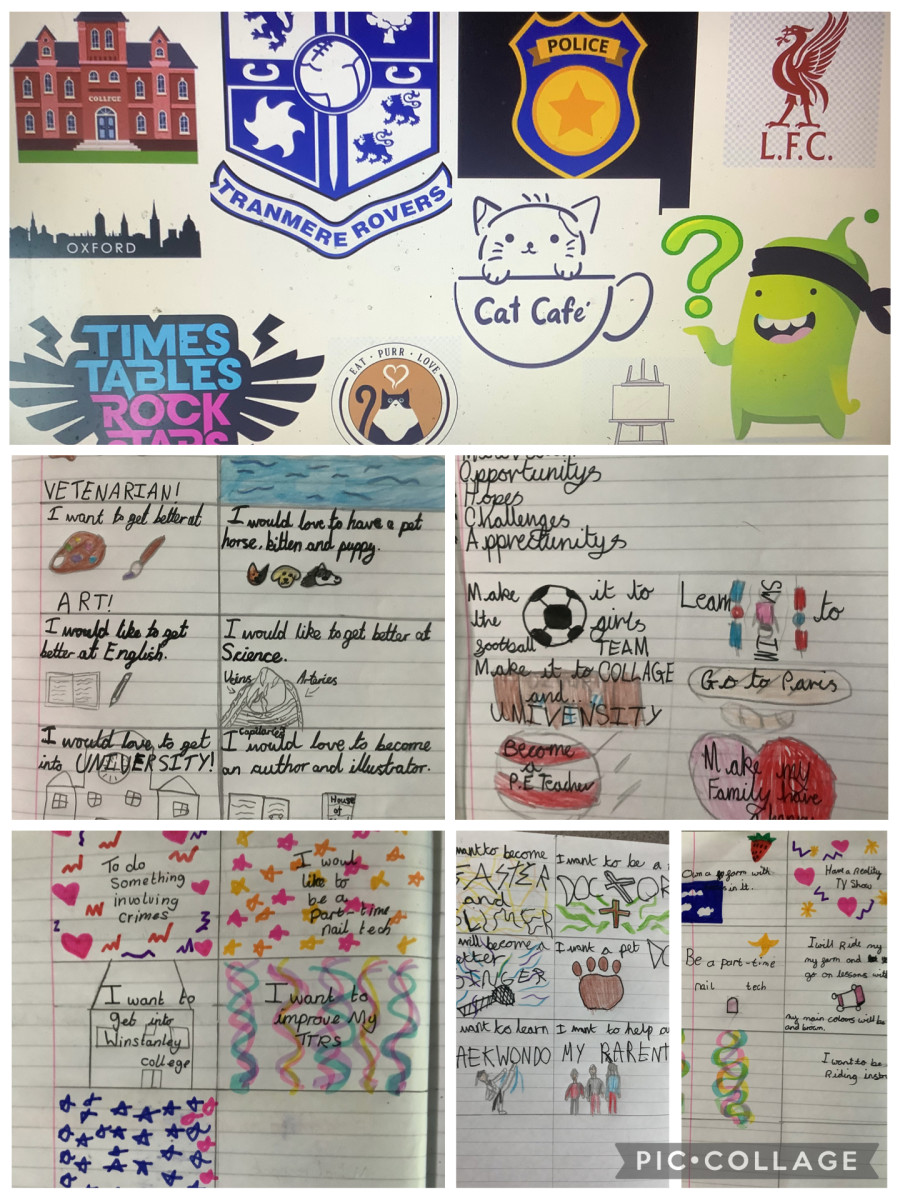 COLLEGE
C C
TRANMERE ROVERS
POLICE
L.F.C.
OXFORD
Cat Café
TIMES
TABLES
ROCK
STARS
EAT · PURR · LOVE
VETENARIAN!
I want to get better at
ART!
I would like to get
better at English.
I would love to get
into UNIVERSITY!
I would love to have a pet
horse, kitten and puppy.
I would like to get better at
Science.
Veins Arteries
Capilaries
I would love to become
an author and illustrator.
House
of
Opportunitys
Hopes
Challenges
Make it to
the girls
football TEAM
Learn SWIM to
Make it to COLLAGE
and...
UNIVENSITY
Go to Paris
Become
a
P.E Teacher
Make my
Family have
a
To do
Something
involving
crimes
I woul
like to
be a
part-time
nail tech
I want to
get into
Winstanley
college
I want to
improve My
TTRs
want to become
FASTER
and
I want to be a
DOCTOR
will become a
etter
INGER
I want a pet DO
want to learn
AEKWONDO
I want to help a
MY PARENT
Own a farm with
in it.
Have a Reality
TV Show
Be a part-time
nail tech
I will Ride my
my farm and
go on lessons with
my main colours will be
and brown.
I want to be
Riding instr
PIC•COLLAGE